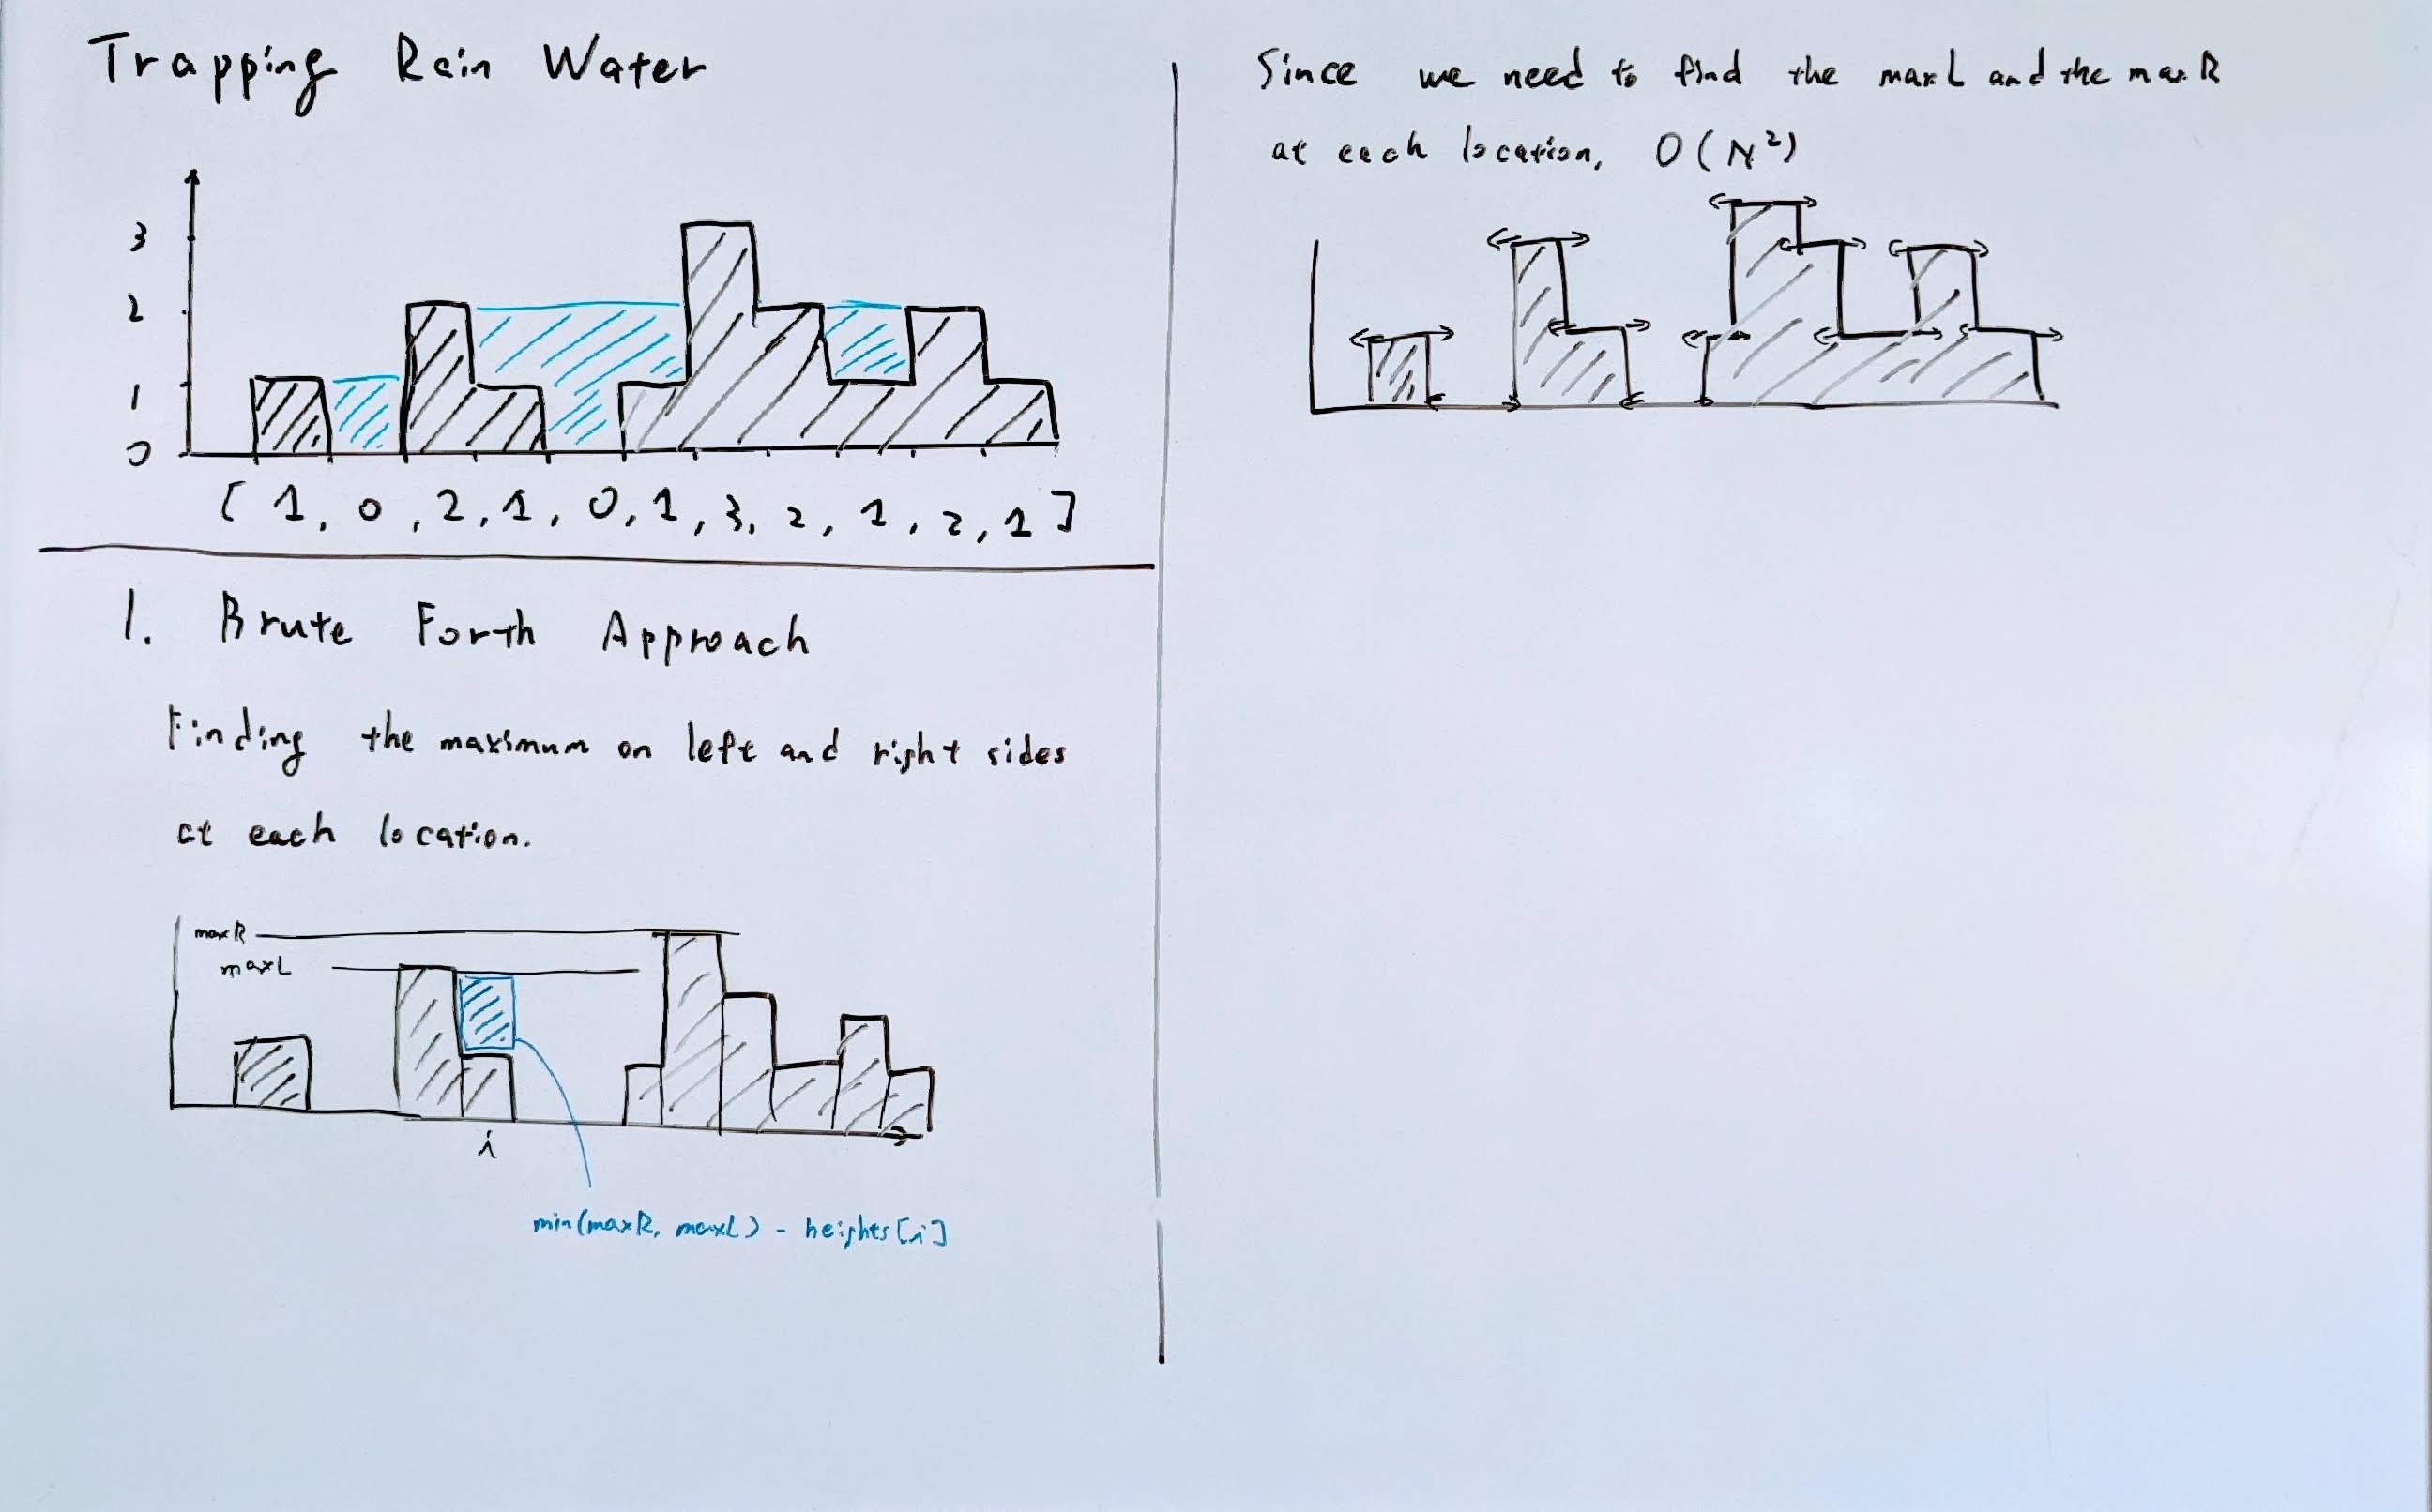 Trapping Rain Water
3
2
1
0
[ 1, 0, 2, 1, 0, 1, 3, 2, 1, 2, 1 ]
1. Brute Forth Approach
Finding the maximum on left and right sides
at each location.
maxR
maxL
i
min(maxR, maxL) - heights[i]
Since we need to find the maxL and the maxR
at each location, O(N²)